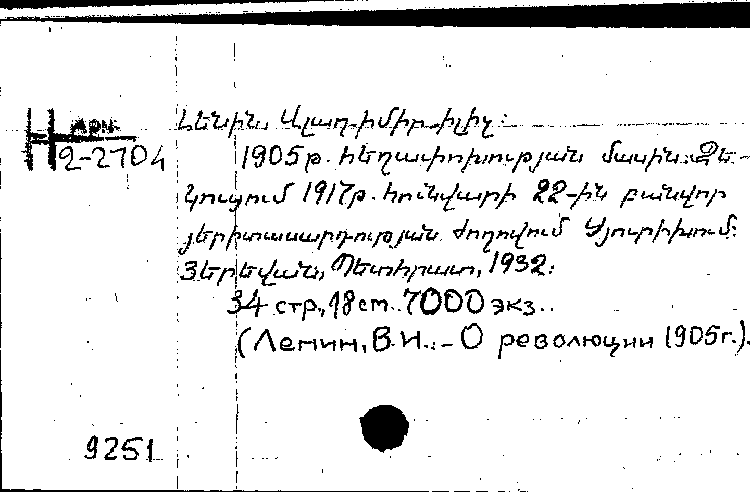 Арм.
Н 2-2704
Լենին, Վլադիմիր Իլիչ:
1905 թ. հեղափոխության մասին: Զե-
կուցում 1917 թ. հունվարի 22-ին բանվոր
յերիտասարդության ժողովում Ցյուրիխում:
Յերեվան, Պետհրատ, 1932:
34 стр., 18 см. 7000 экз..
(Ленин, В.И.: - О революции 1905 г.).
9251